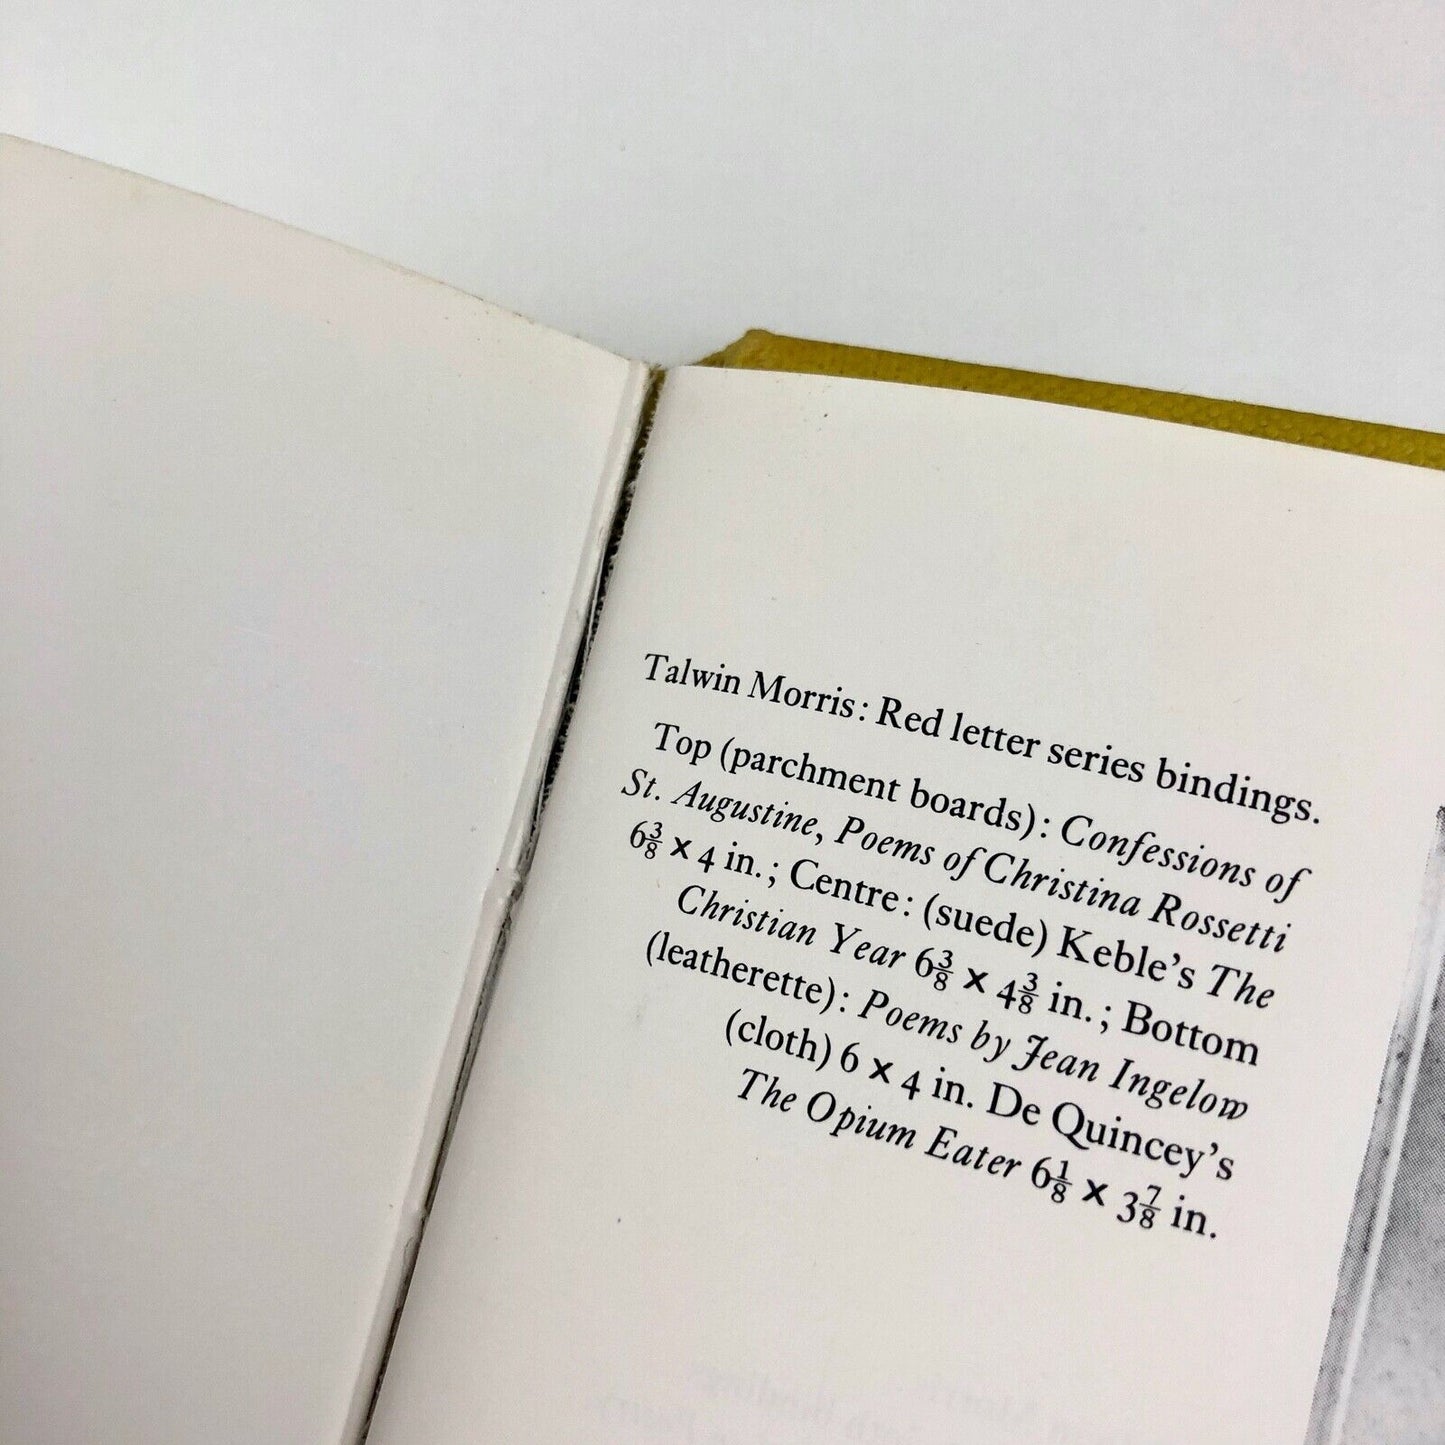 Talwin Morris: Red letter series bindings.
Top (parchment boards): Confessions of
St. Augustine, Poems of Christina Rossetti
6⅜ × 4 in.; Centre: (suede) Keble's The
Christian Year 6⅜ × 4⅜ in.; Bottom
(leatherette): Poems by Jean Ingelow
(cloth) 6 × 4 in. De Quincey's
The Opium Eater 6⅛ × 3⅞ in.